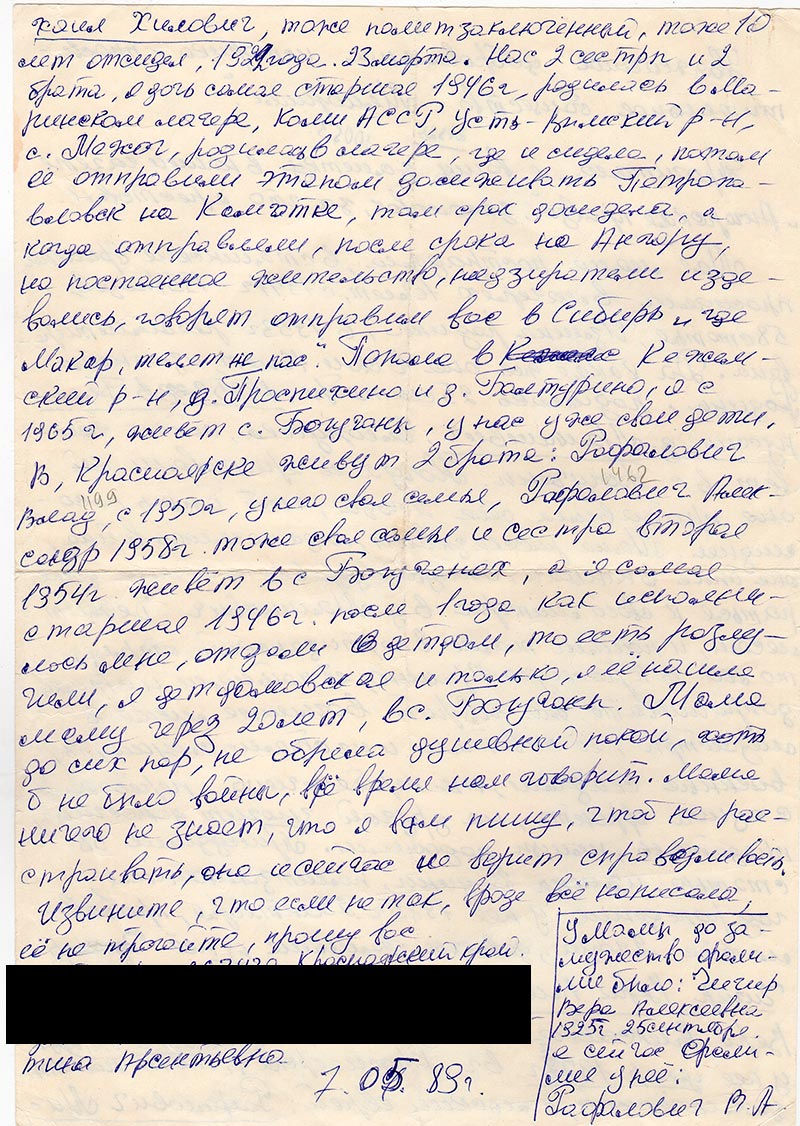 хаил Хилович, тоже политзаключённый, тоже 10
лет отсидел, 1921года. 23 марта. Нас 2 сестры и 2
брата, я дочь самая старшая 1946г, родилась в Ма-
ринском лагере, Коми АССР Усть-Вимский р-н,
с. Межог, родилась в лагере, где и сидела, потом
её отправили этапом досиживать Петропа-
вловск на Камчатке, там срок досидела, а
когда отправляли, после срока на Ангару,
на постоенное жительство, надзиратели изде-
вались, говорят отправим вас в Сибирь „где
Макар, телят не пас". Попала в Кежем-
ский р-н, д. Проспихино и д. Болтурино, а с
1965г, живёт с. Богучаны, у нас уже свои дети,
В, Красноярске живут 2 брата: Рафалович
1962
Влад, с 1950г, у него своя семья, Рафалович Алек-
1199
сандр 1958г. тоже своя семья и сестра вторая
1954г. живёт в с Богучанах, а я самая
старшая 1946г. после 1года как исполни-
лось мне, отдали в детдом, то есть разлу-
чили, я детдомовская и только, я её нашла
маму через 20лет, в с. Богучаны. Мама
до сих пор, не обрела душевный покой, хоть
б не было войны, всё время нам говорит. Мама
ничего не знает, что я вам пишу, чтоб не рас-
страивать, она и сейчас не верит справедливость.
Извините, что если не так, вроде всё написала,
её не трогайте, прошу вас.
Красноярский край.
тина Арсентьевна.
7. 05. 89г.
У Мамы до за-
мужество фамили-
мие было: Чигир
Вера Алексеевна
1925г. 25 сентября.
а сейчас Фамили-
мие у неё:
Рафалович В. А.